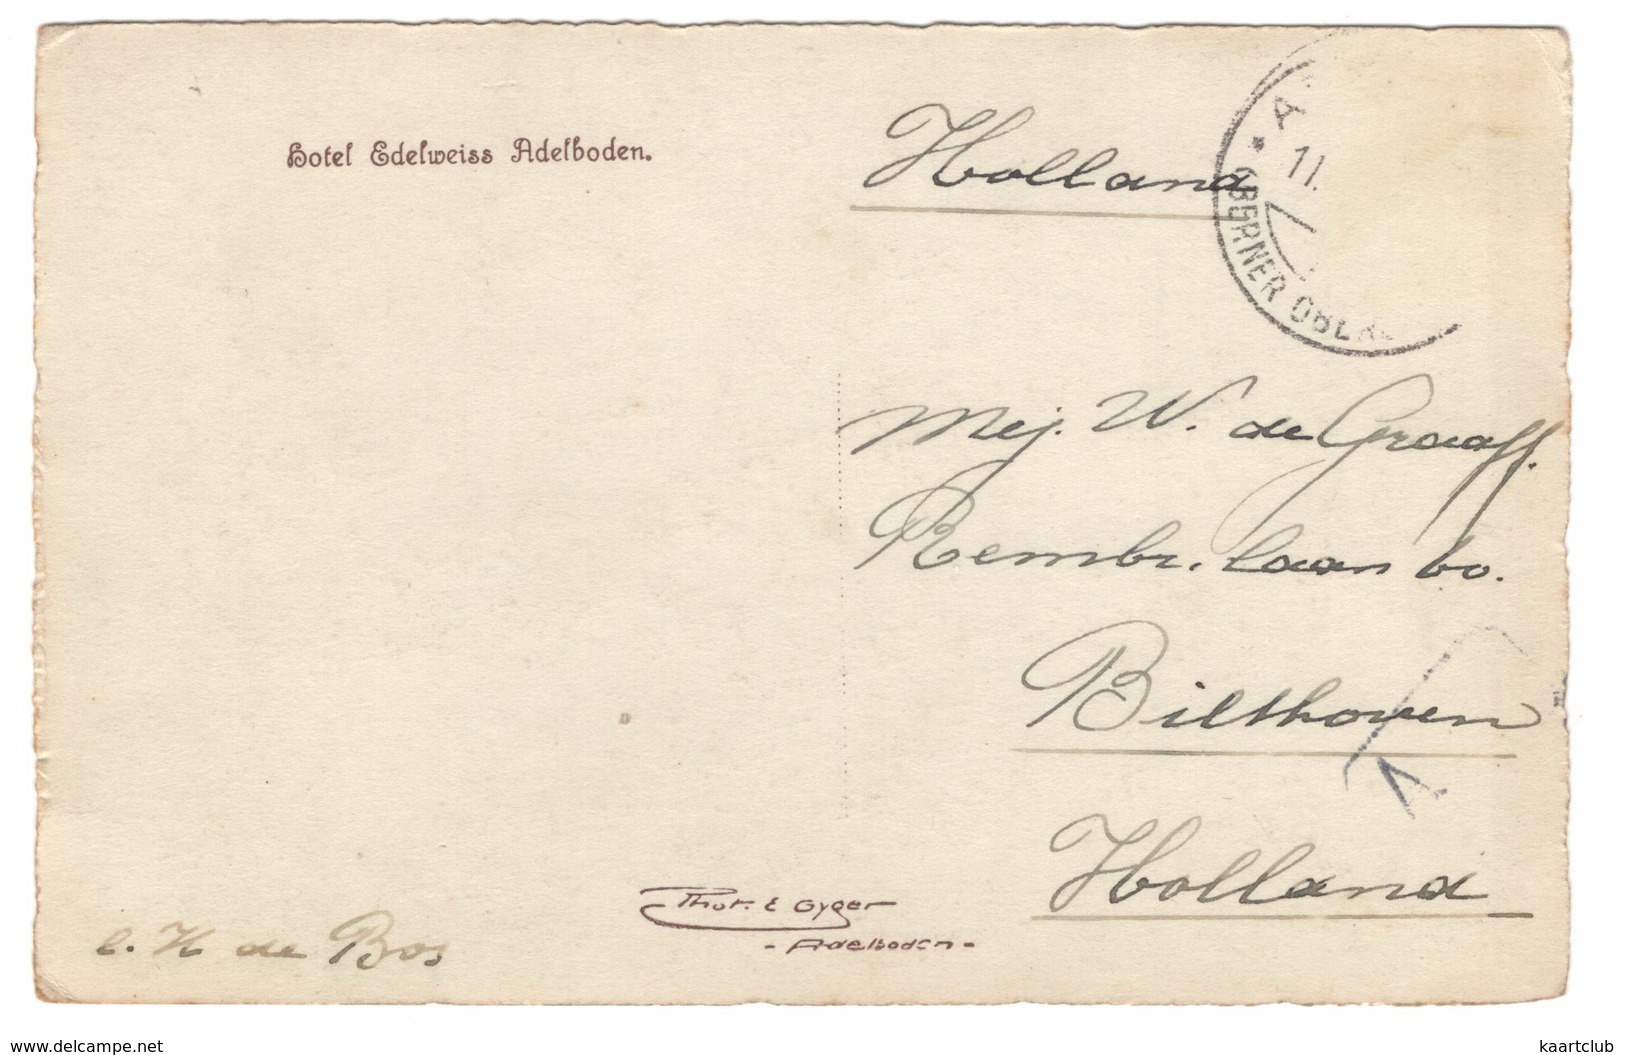 Hotel Edelweiss Adelboden.
Holland
A
11.
BERNER OBERL
Mej. W. de Graaff.
Rembr. laan 60.
Bilthoven
Holland
A
Phot. E Gyger
- Adelboden -
de Bos
www.delcampe.net
kaartclub